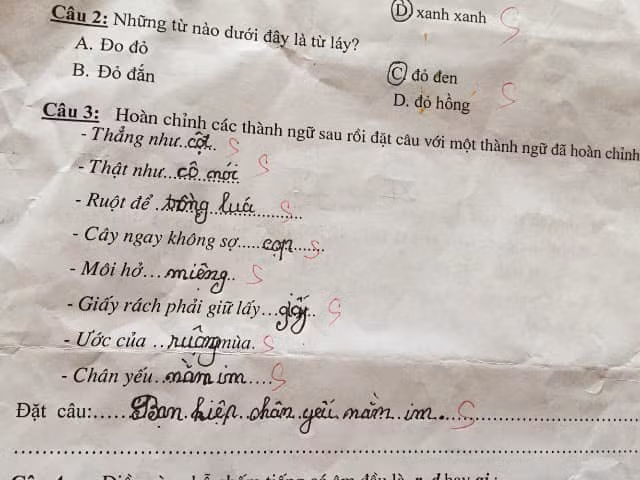 D xanh xanh S
Câu 2: Những từ nào dưới đây là từ láy?
A. Đo đỏ
B. Đỏ đắn
C đỏ đen S
D. đỏ hồng
Câu 3: Hoàn chỉnh các thành ngữ sau rồi đặt câu với một thành ngữ đã hoàn chỉnh
- Thẳng như..cột.. S
- Thật như...cô mói S
- Ruột để ..tròng luá............ S
- Cây ngay không sợ.....cọp...... S
- Môi hở...miệng.. S
- Giấy rách phải giữ lấy...giấy.. S
- Ước của ...ruộng mùa. S
- Chân yếu..nằm im.... S
Đặt câu:.....Bạn.hiệp.chân.yếu.nằm.im. S